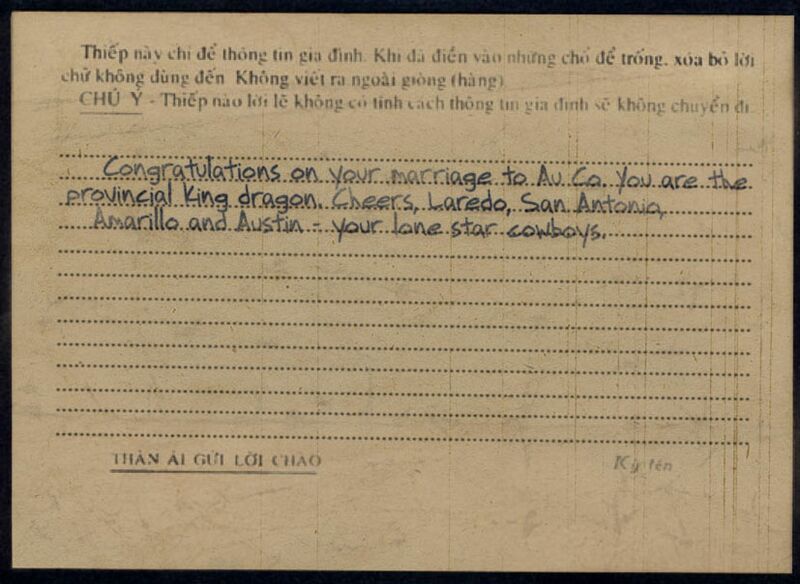 Thiếp này chỉ để thông tin gia đình. Khi đã điền vào những chổ để trống, xóa bỏ lời
chữ không dùng đến Không viết ra ngoài giòng (hàng)
CHÚ Ý - Thiếp nào lời lẽ không có tính cách thông tin gia đình sẽ không chuyển đi.
Congratulations on your marriage to Au Co. You are the
provincial King dragon. Cheers, Laredo, San Antonio,
Amarillo and Austin - your lone star cowboys.
THÂN ÁI GỬI LỜI CHÀO
Ký tên